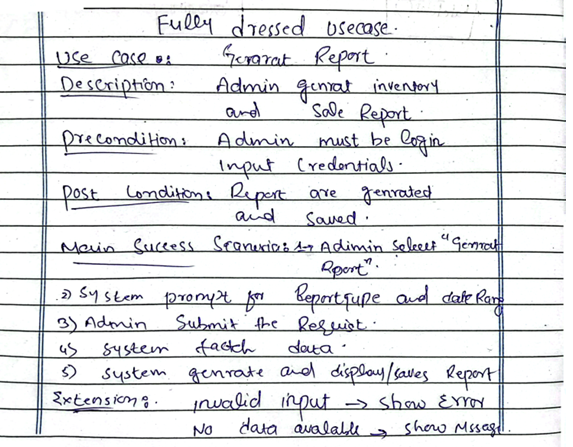 Fully dressed usecase.
Use case: Gerarat Report.
Description: Admin genrat inventory
and Sale Report.
Precondition: Admin must be login
Input Credentials.
Post Condition: Report are genrated
and Saved.
Main Success Scanerio: 1→ Adimin Select "Genrat
Rport".
2) System prompt for Report Type and date Rang
3) Admin Submit the Request.
4) System factch data.
5) System genrate and display/saves Report
Extension: invalid input → show Error
No data available → show Mssage.